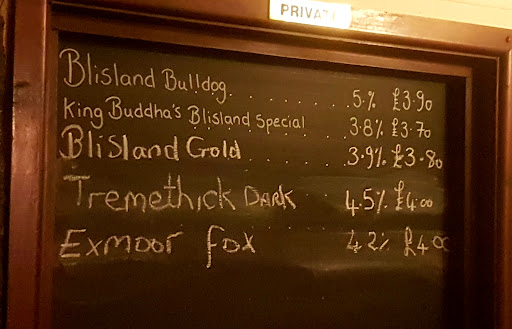 PRIVATE
Blisland Bulldog. . . . . . . . . . .5·% £3·90
King Buddha's Blisland Special 3·8% £3·70
Blisland Gold . . . . . . 3·9% £3·80
Tremethick Dark . . . 4.5% £4·00
Exmoor Fox . . . . . 4.2% £4·00